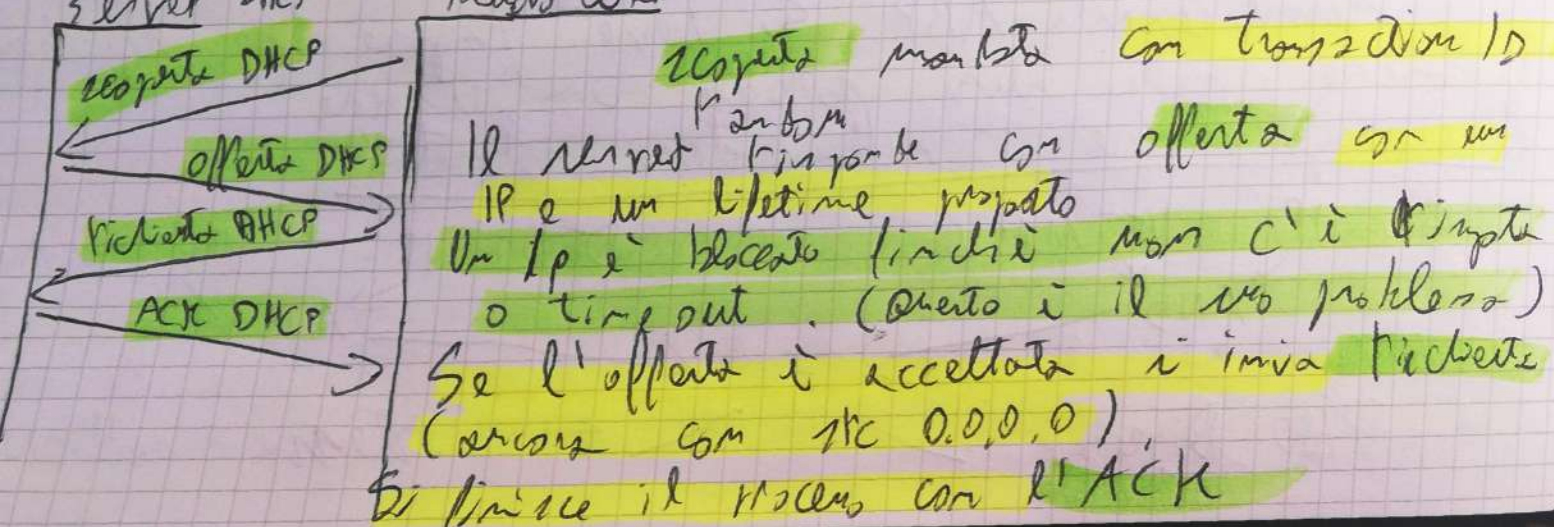 Server DHCP
scoperta DHCP
offerta DHCP
richiesta DHCP
ACK DHCP
scoperta mandata con transaction ID
random
Il server risponde con offerta con un
IP e un lifetime proposto
Un Ip è bloccato finchè non c'è risposta
o timeout. (Questo è il vero problema)
Se l'offerta è accettata si invia richiesta
(ancora con src 0.0.0.0).
Si finisce il processo con l'ACK